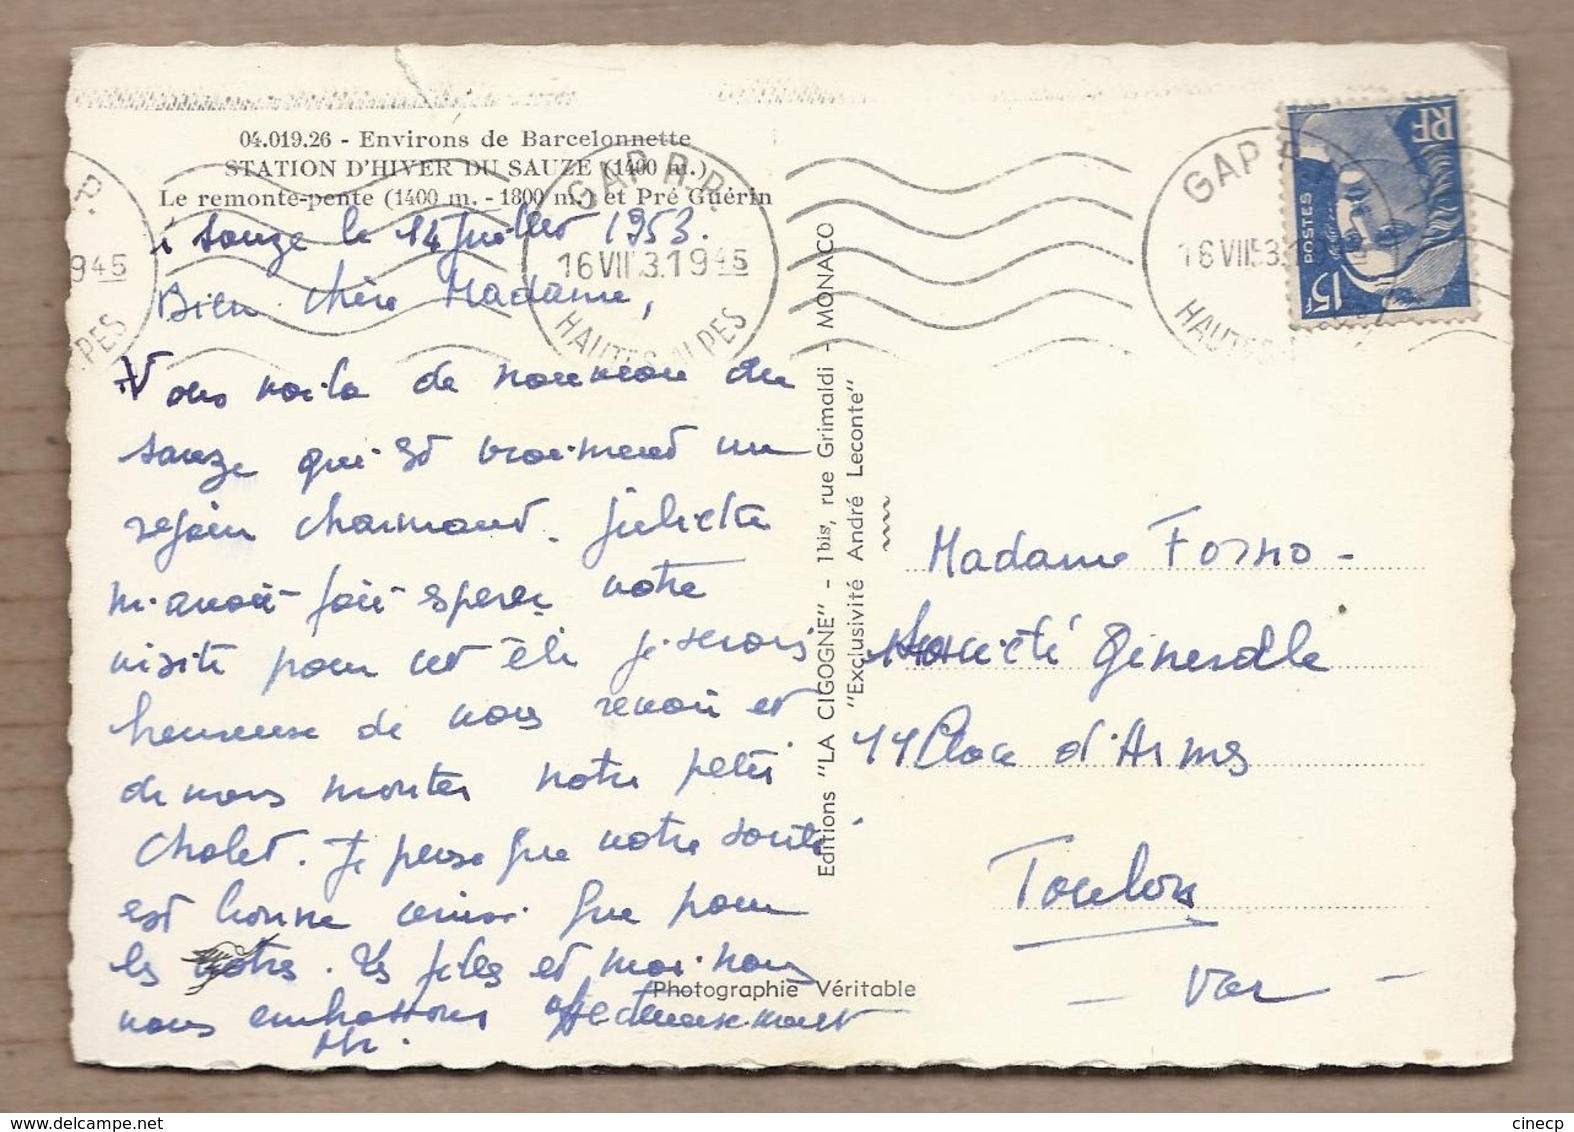 04.019.26 - Environs de Barcelonnette
STATION D'HIVER DU SAUZE (1400 m.)
Le remonte-pente (1400 m. - 1800 m.) et Pré Guérin
Sauze le 14 Juillet 1953.
Bien chère Madame,
Nous voila de nouveau au
Sauze qui est vraiment un
charmant. Juliette
m'avait fait esperer votre
visite pour cet été je serais
heureuse de vous revoir et
de vous montrer notre petit
chalet. Je pense que votre santé
est bonne ainsi que pour
les votres. Les filles et moi nous
vous embrassons affectueusement
GAP R.P.
16 VII 53. 19 45
HAUTES-ALPES
P.
9 45
PES
GAP R
16 VII 53. 1
HAUTES
RF
POSTES
15F
Editions "LA CIGOGNE" - 1bis, rue Grimaldi - MONACO
"Exclusivité André Leconte"
Photographie Véritable
Madame Forno -
Société Générale
11 Place d'Armes
Toulon
- Var -
cinecp